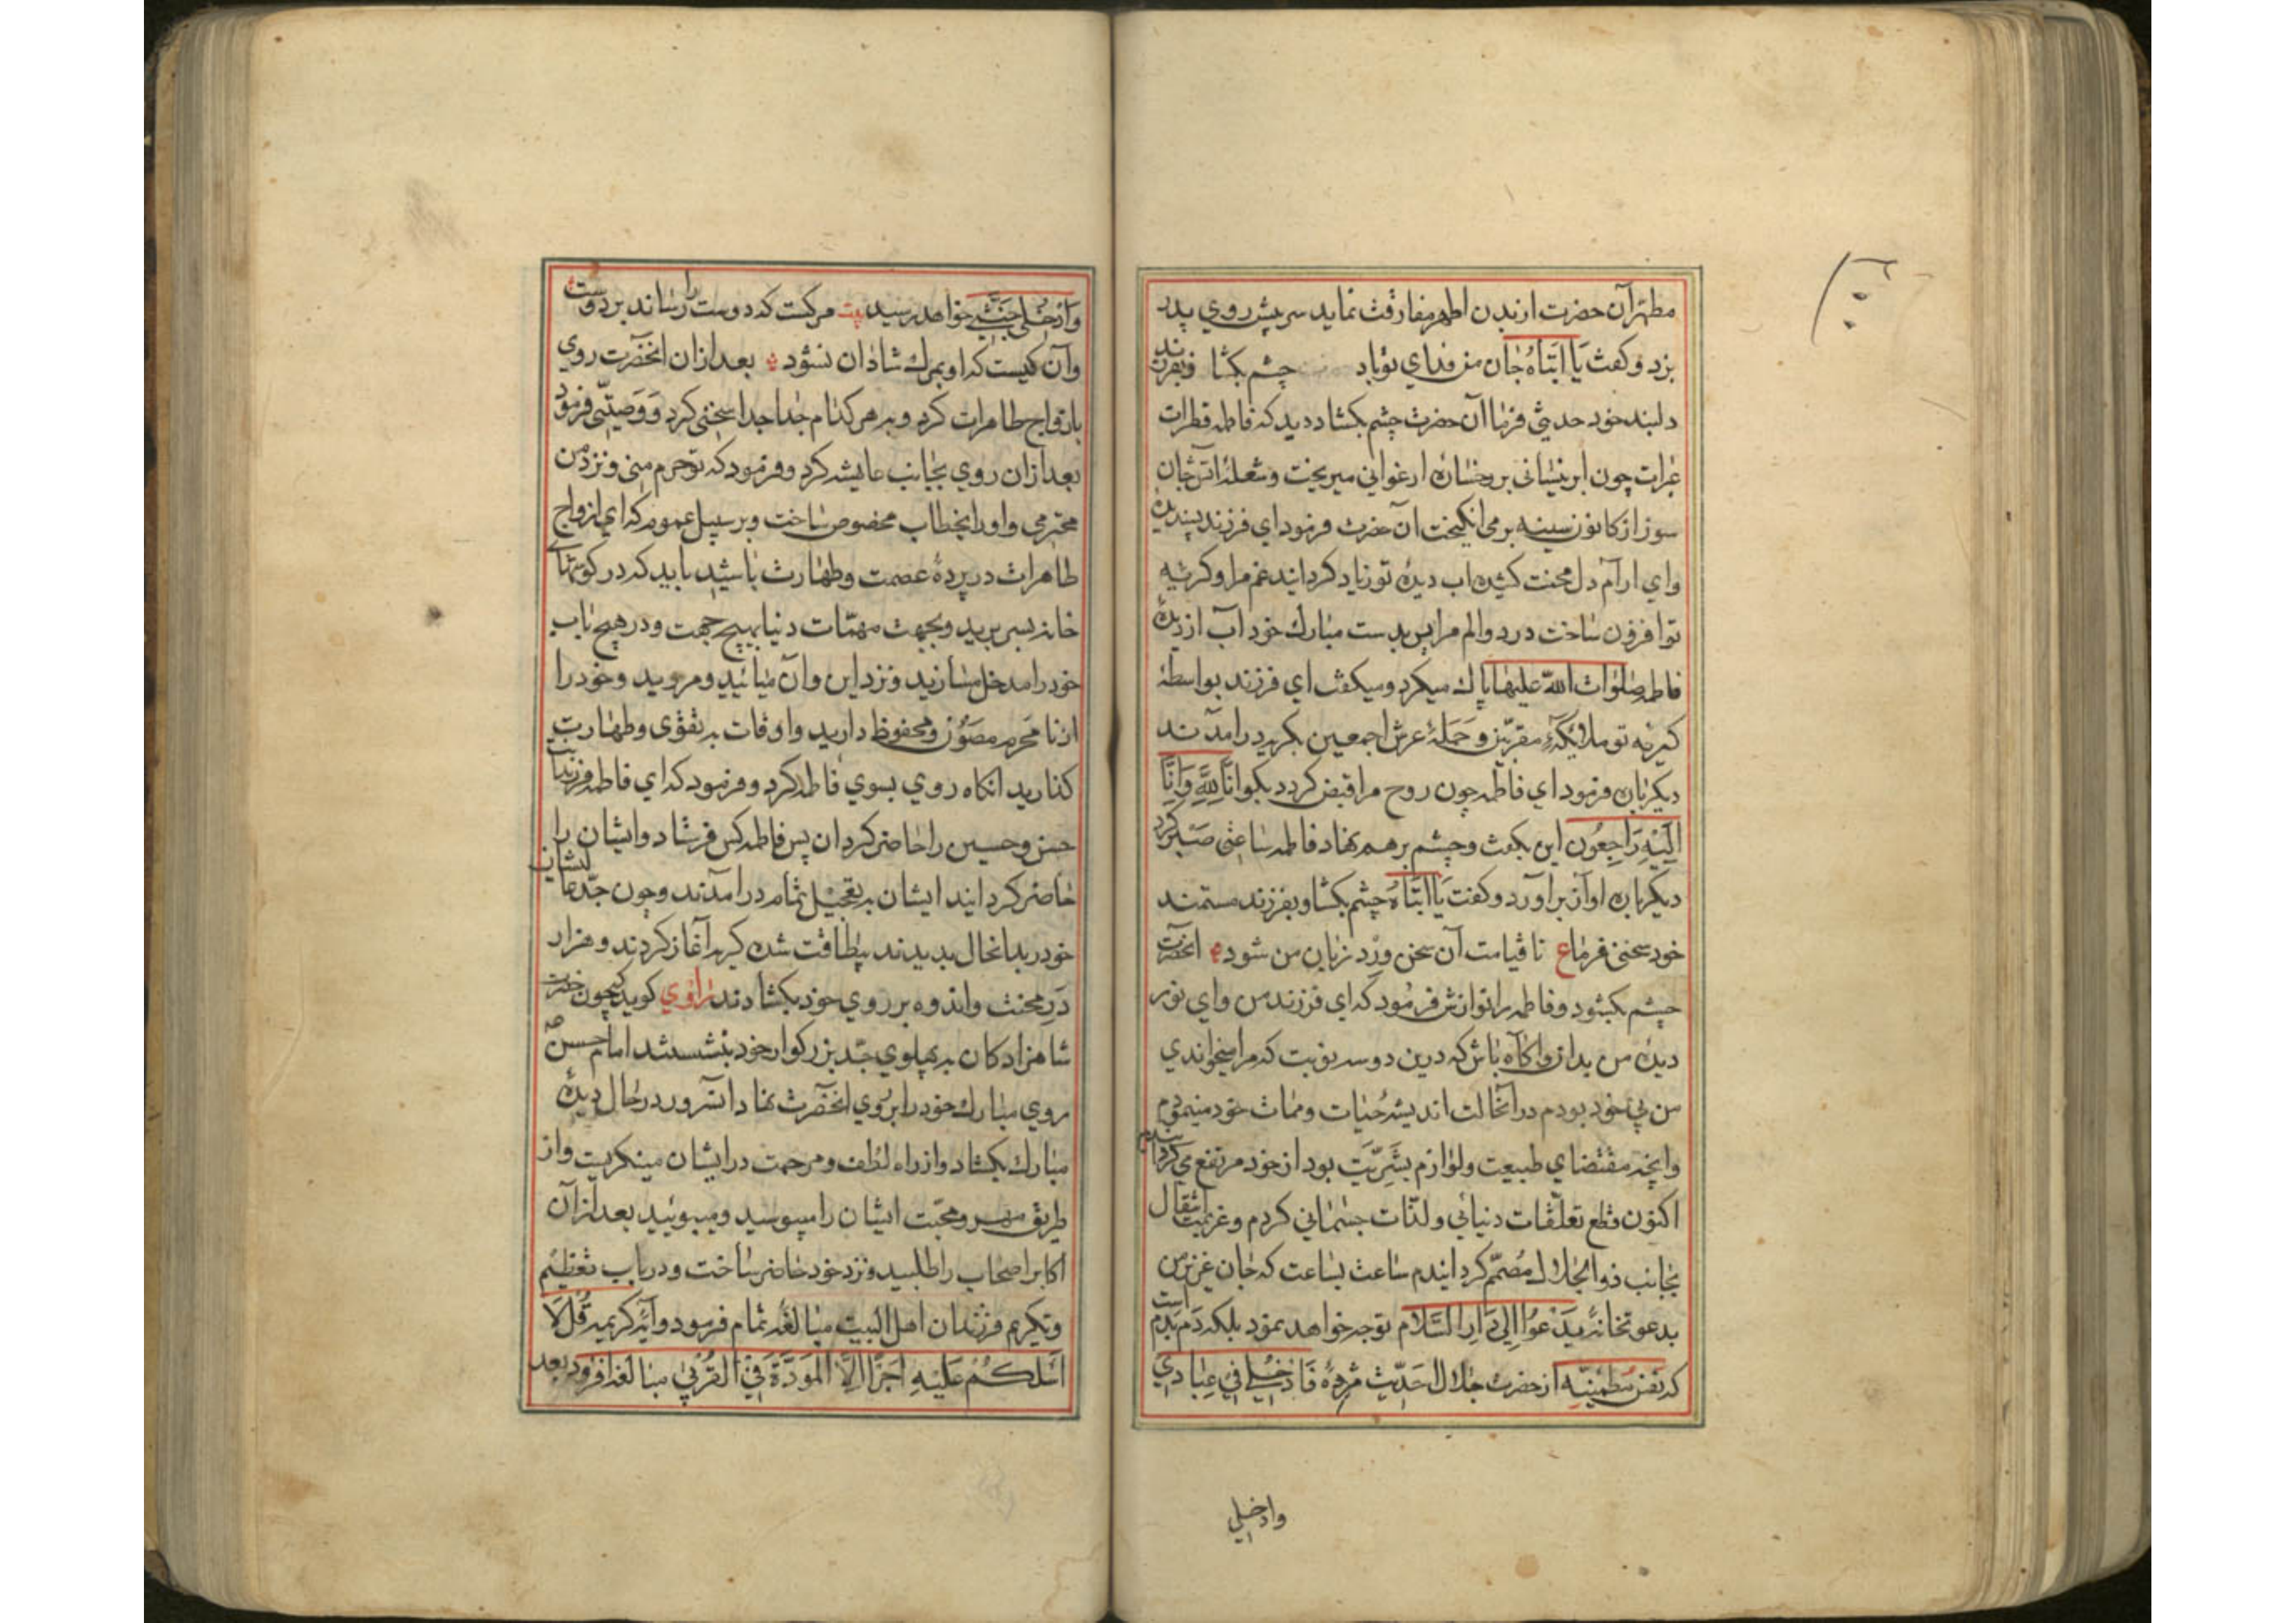 مطهر آن حضرت از بدن اطهر مفارقت نماید سر پیش روی پدر
برد و گفت یا ابتاه جان من فدای تو باد چشم بکشا و بفرزند
دلبند خود حدیثی فرما آن حضرت چشم بکشاد دید که فاطمه قطرات
عبرات چون ابر نیسانی بر رخساره ارغوانی میریخت و شعله آتش جان
سوز از کانون سینه بر می انگیخت آن حضرت فرمود ای فرزند پسندیده
و ای آرام دل محنت کشیده آب دیده تو زیاد گردانید غم مرا و گریه
تو افزون ساخت درد و الم مرا پس بدست مبارک خود آب از دیده
فاطمه صلوات الله علیها پاک میکرد و میگفت ای فرزند بواسطه
گریه تو ملائکه مقربین و حمله عرش اجمعین بگریه درآمدند
دیگر باره فرمود ای فاطمه چون روح مرا قبض کردند بگو انا لله و انا
الیه راجعون این بگفت و چشم بر هم نهاد فاطمه ساعتی صبر کرد
دیگر باره آواز برآورد و گفت یا ابتاه چشم بکشا و بفرزند مستمند
خود سخنی فرما ع تا قیامت آن سخن ورد زبان من شود آنحضرت
چشم بکشود و فاطمه را نوازش فرمود که ای فرزند من و ای نور
دیده من بدان و آگاه باش که درین دو سه نوبت که مرا میخواندی
من بی خود بودم در آنحالت اندیشه حیات و ممات خود مینمودم
و آنچه مقتضای طبیعت و لوازم بشریت بود از خود مرتفع می کردم
اکنون قطع تعلقات دنیائی و لذات جسمانی کردم و عزیمت انتقال
بجانب ذوالجلال مصمم گردانیدم ساعت بساعت که جان عزیز من
بدعوتخانه یدعوا الی دار السلام توجه خواهد نمود بلکه دم بدم است
که نفس مطمئنه از حضرت جلال احدیت مژده فادخلی فی عبادی
وادخلی
وادخلی جنتی خواهد رسید بیت مرگست که دوست را رساند بر دوست
و آن کیست که او بمرک شادان نشود بعد از آن آنحضرت روی
بازواج طاهرات کرد و به هر کدام جدا جدا سخنی کرد و وصیتی فرمود
بعد از آن روی بجانب عایشه کرد و فرمود که تو حرم منی و نزد من
محترمی و او را بخطاب مخصوص ساخت و بر سبیل عموم که ای ازواج
طاهرات در پرده عصمت و طهارت باشید باید که در گوشهای
خانه بسر برید و بجهت مهمات دنیا بهیچ جهت و در هیچ باب
خود را مدخل مسازید و نزد این و آن میائید و مروید و خود را
از نا محرم مصون و محفوظ دارید و اوقات به تقوی و طهارت
گذارید آنگاه روی بسوی فاطمه کرد و فرمود که ای فاطمه فرزندانت
حسن و حسین را حاضر گردان پس فاطمه کس فرستاد و ایشان را
حاضر گردانید ایشان به تعجیل تمام درآمدند و چون جد عالیشان
خود ر بدانحال بدیدند بیطاقت شده گریه آغاز کردند و هزار
در محنت و اندوه بر روی خود بکشادند راوی گوید که چون حضرت
شاهزادکان به پهلوی جد بزرگوار خود بنشستند امام حسن
روی مبارک خود را بروی آنحضرت نهاد آنسرور در حال دیده
مبارک بکشاد و از راه لطف و مرحمت در ایشان مینگریست و از
طریق مهر و محبت ایشان را میبوسید و میبوئید بعد از آن
اکابر اصحاب را طلبید و نزد خود حاضر ساخت و در باب تعظیم
و تکریم فرزندان اهل البیت مبالغه تمام فرمود و آیه کریمه قل لا
اسئلکم علیه اجرا الا المودة فی القربی مبالغه افزود بعد